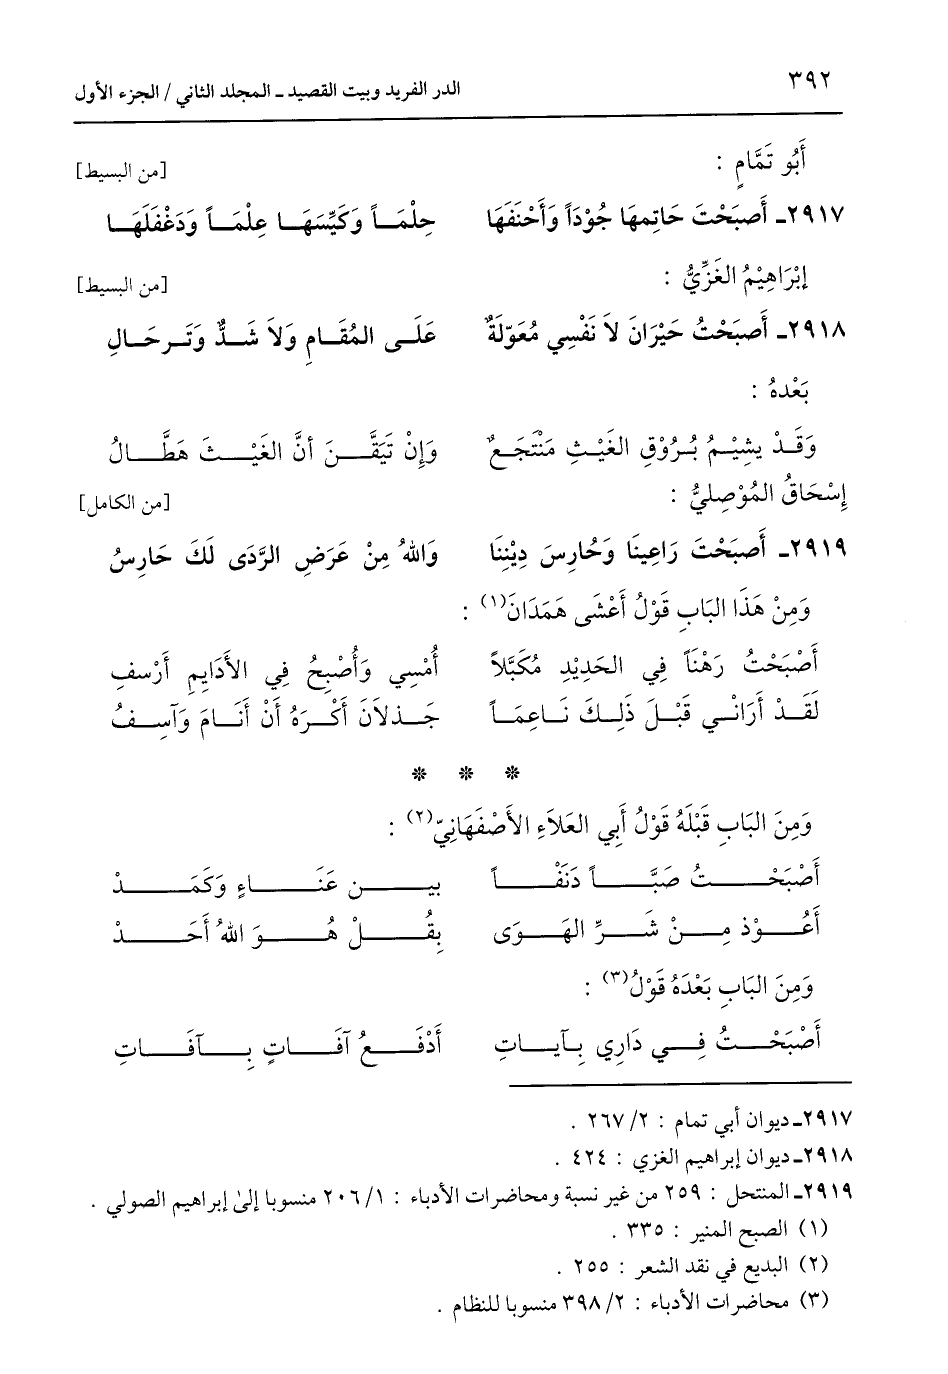 ٣٩٢ الدر الفريد وبيت القصيد ـ المجلد الثاني / الجزء الأول
أَبُو تَمَّامٍ : [من البسيط]
٢٩١٧ـ أَصبَحْتَ حَاتِمهَا جُوْدَاً وَأَحْنَفَهَا حِلْمَـاً وَكَيِّسَهَـا عِلْمَـاً وَدَغْفَلَهَـا
إبْرَاهِيْمُ الغَزِّيُّ : [من البسيط]
٢٩١٨ـ أَصبَحْتُ حَيْرَانَ لاَ نَفْسِي مُعَوّلَةٌ عَلَـى المُقَـامِ وَلاَ شَـدٌّ وَتَـرحَـالِ
بَعْدهُ :
وَقَـدْ يشِيْـمُ بُـرُوْقِ الغَيْـثِ مَنْتَجَـعٌ وَإِنْ تَيَقَّـنَ أنَّ الغَيْـثَ هَطَّـالُ
إسْحَاقُ المُوْصِليُّ : [من الكامل]
٢٩١٩ـ أَصبَحْتَ رَاعِينَا وَحُارِسَ دِيْنِنَا وَاللهُ مِنْ عَرَضِ الرَّدَى لَكَ حَارِسُ
وَمِنْ هَذَا البَابِ قَوْلُ أَعْشَى هَمَدَانَ(١) :
أَصْبَحْتُ رَهْنَاً فِي الحَدِيْدِ مُكَبَّلاً أُمْسِي وَأُصْبِحُ فِي الأَدَايِمِ أَرْسفِ
لَقَـدْ أَرَانْـي قَبْـلَ ذَلِـكَ نَـاعِمَـاً جَـذلاَنَ أَكْـرَهُ أَنْ أَنَـامَ وَآسِـفُ
* * *
وَمِنَ البَابِ قَبْلَهُ قَوْلُ أَبِي العَلاَءِ الأَصْفَهَانِيّ(٢) :
أَصْبَحْـتُ صَبَّـاً دَنَفْـاً بيـن عَنَـاءٍ وَكَمَـدْ
أَعُـوْذ مِـنْ شَـرِّ الهَـوَى بِقُـلْ هُـوَ اللهُ أَحَـدْ
وَمِنَ البَابِ بَعْدَهُ قَوْلُ(٣) :
أَصْبَحْـتُ فِـي دَارِي بِـآيـاتِ أَدْفَـعُ آفَـاتٍ بـآفَـاتِ
٢٩١٧ـ ديوان أبي تمام : ٢/ ٢٦٧ .
٢٩١٨ـ ديوان إبراهيم الغزي : ٤٢٤ .
٢٩١٩ـ المنتحل : ٢٥٩ من غير نسبة ومحاضرات الأدباء : ١/ ٢٠٦ منسوبا إلى إبراهيم الصولي .
(١) الصبح المنير : ٣٣٥ .
(٢) البديع في نقد الشعر : ٢٥٥ .
(٣) محاضرات الأدباء : ٢/ ٣٩٨ منسوبا للنظام .